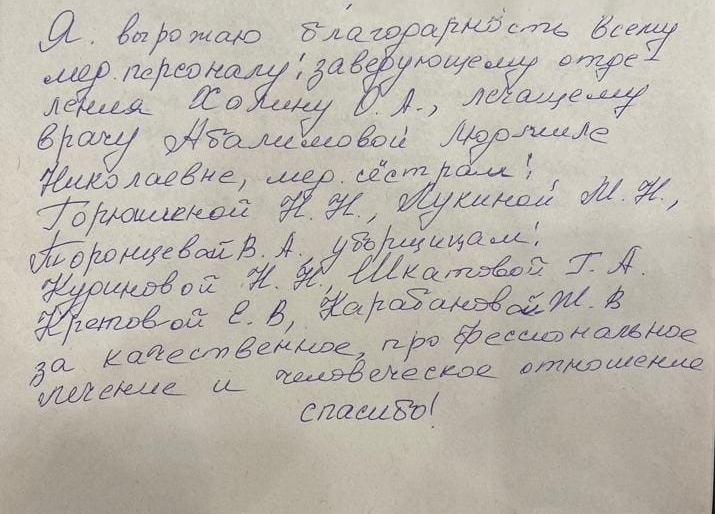 Я. вырожаю благодарность всему
мед. персоналу: заведующему отде-
ления Халину О. А., лечащему
врачу Абалимовой Людмиле
Николаевне, мед. сёстрам:
Горюшкеной Н. Н., Лукиной М. Н.,
Торонцевой В. А. уборщицам:
Куриновой Н. Н., Шкатовой Г. А.
Кретовой Е. В, Карабановой Ж. В
за качественное, профессиональное
лечение и человеческое отношение
спасибо!